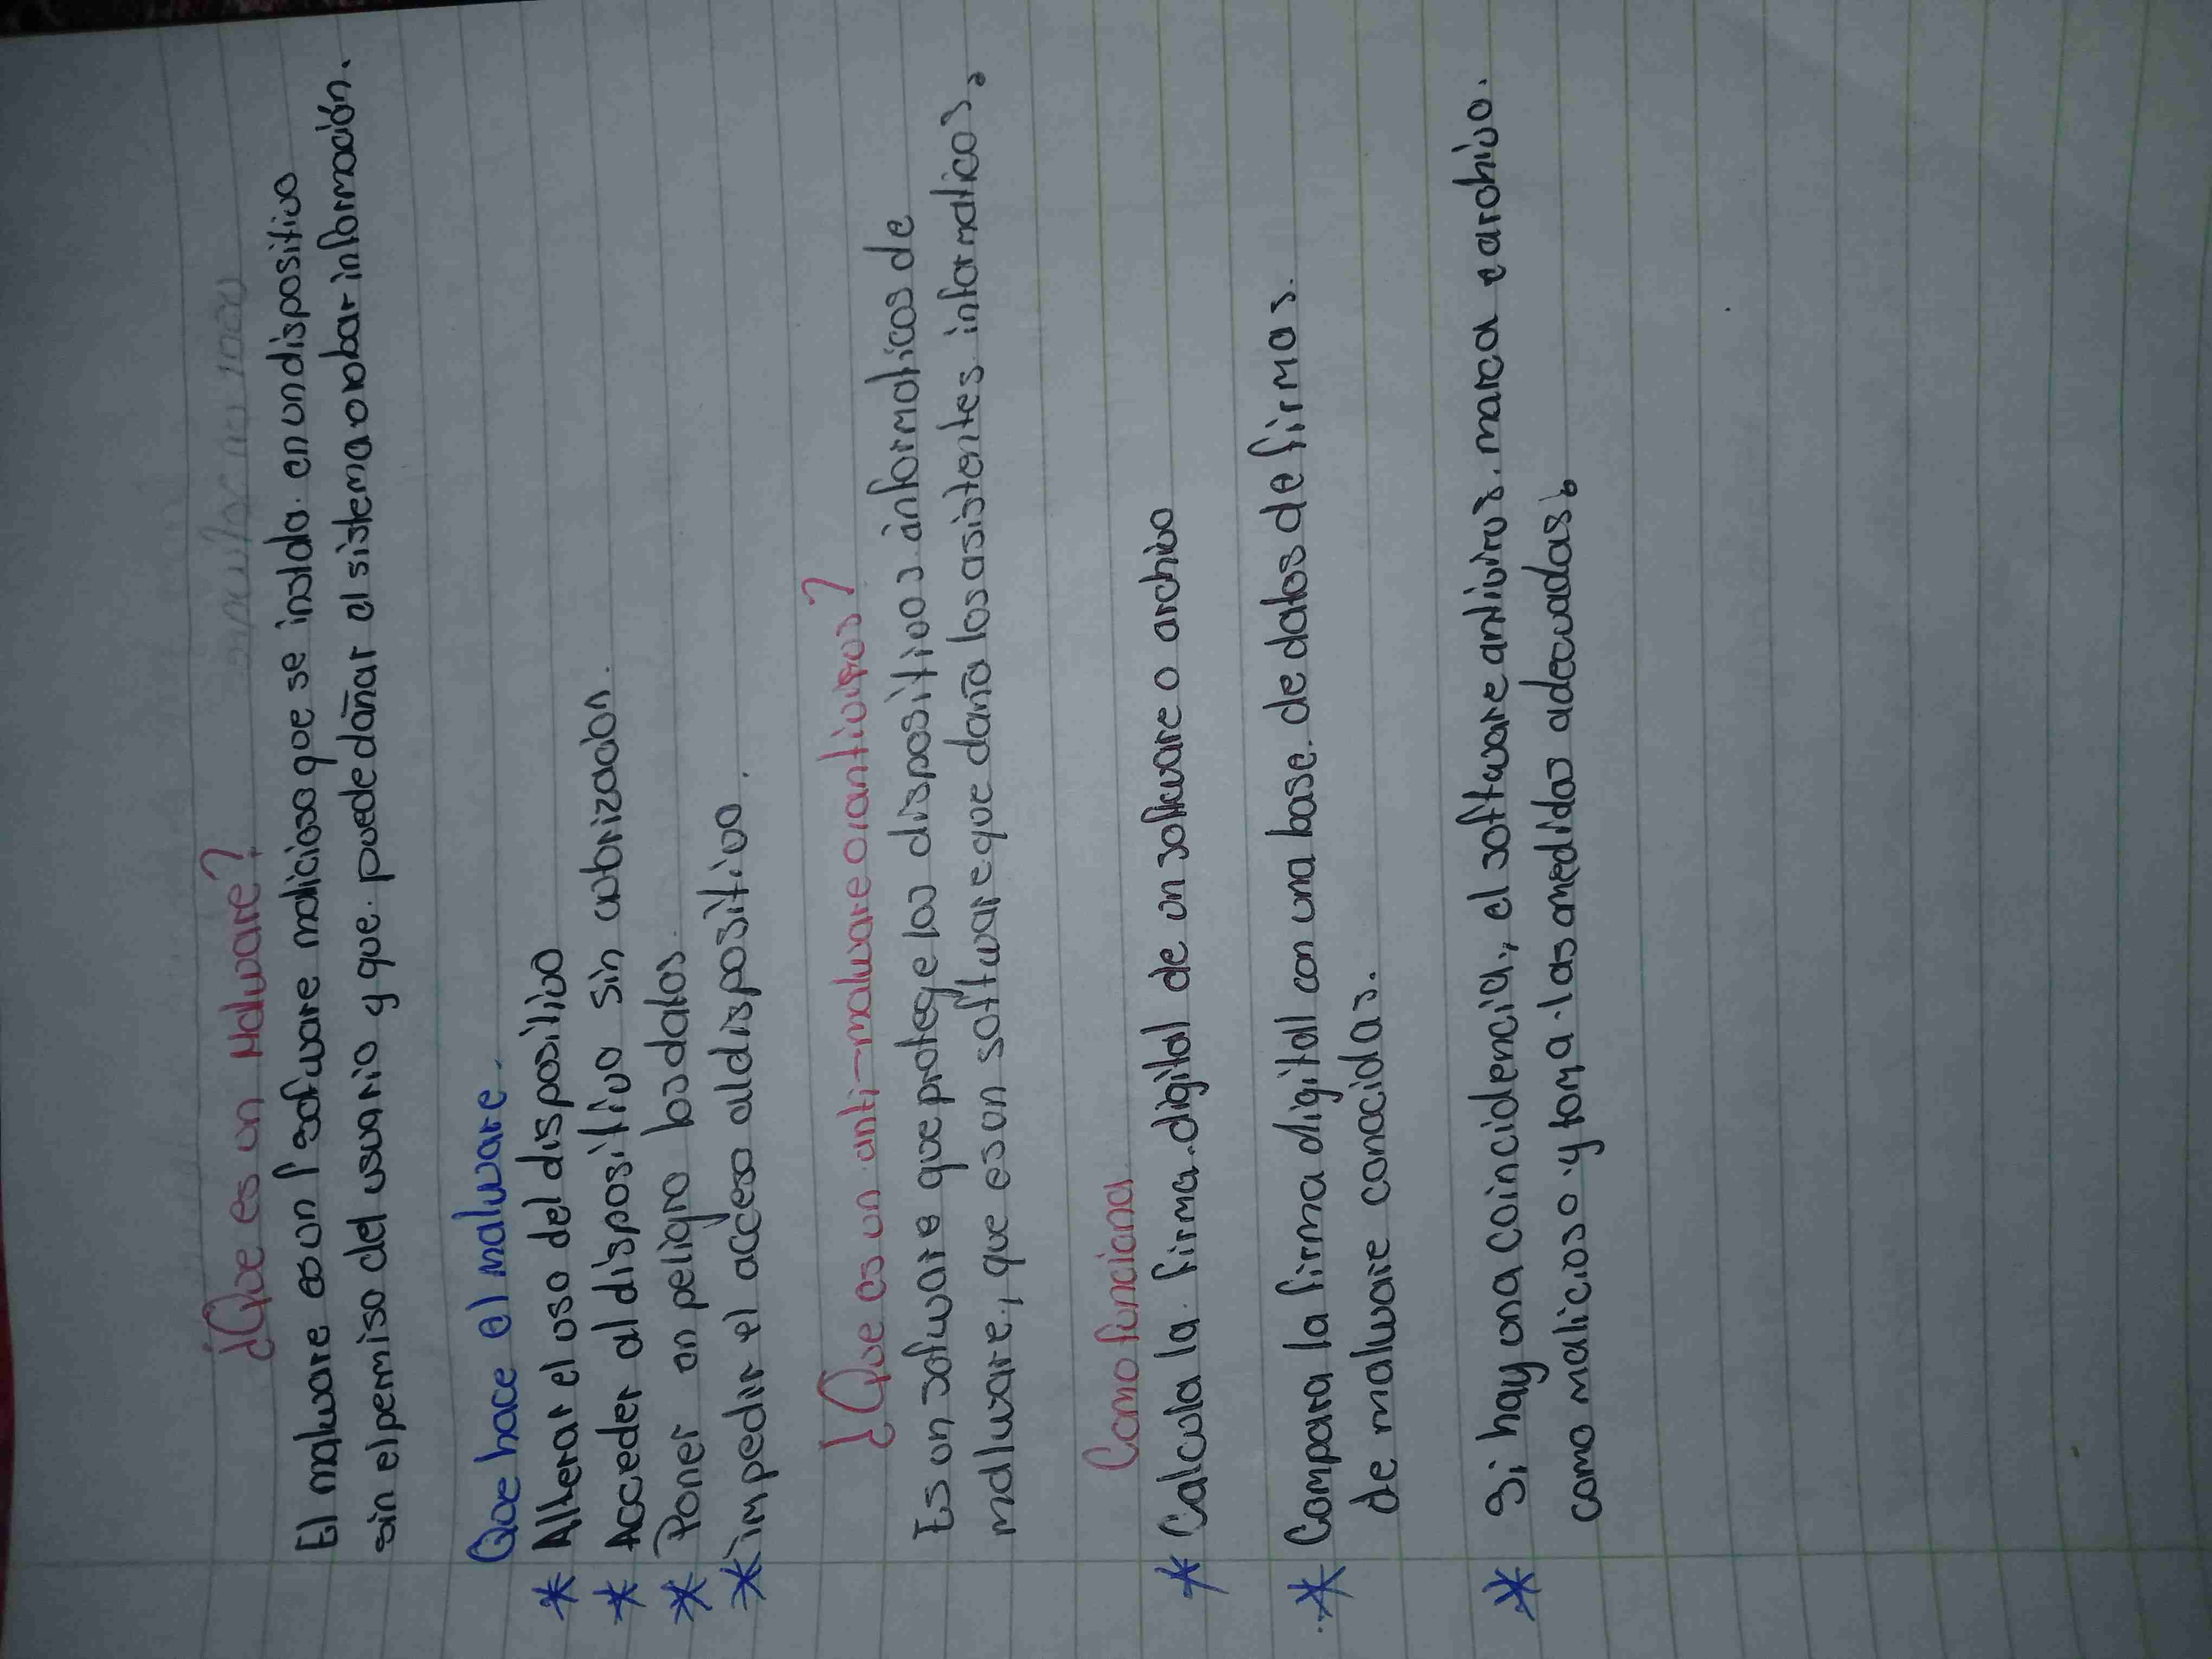 ¿Que es un Malware?
El malware es un sofware malicioso que se instala en un dispositivo
sin el permiso del usuario y que puede dañar el sistema o robar información.
Que hace el malware.
* Alterar el uso del dispositivo
* Acceder al dispositivo sin autorización.
* Poner en peligro los datos.
* impedir el acceso al dispositivo.
¿Que es un anti-malware o antivirus?
Es un sofware que protege los dispositivos informaticos de
malware, que es un software que daña los asistentes informaticos.
Como funciona
* Calcula la firma digital de un sofware o archivo
* Compara la firma digital con una base de datos de firmas
de malware conocidas.
* Si hay una coincidencia, el software antivirus marca e archivo
como malicioso y toma las medidas adecuadas.